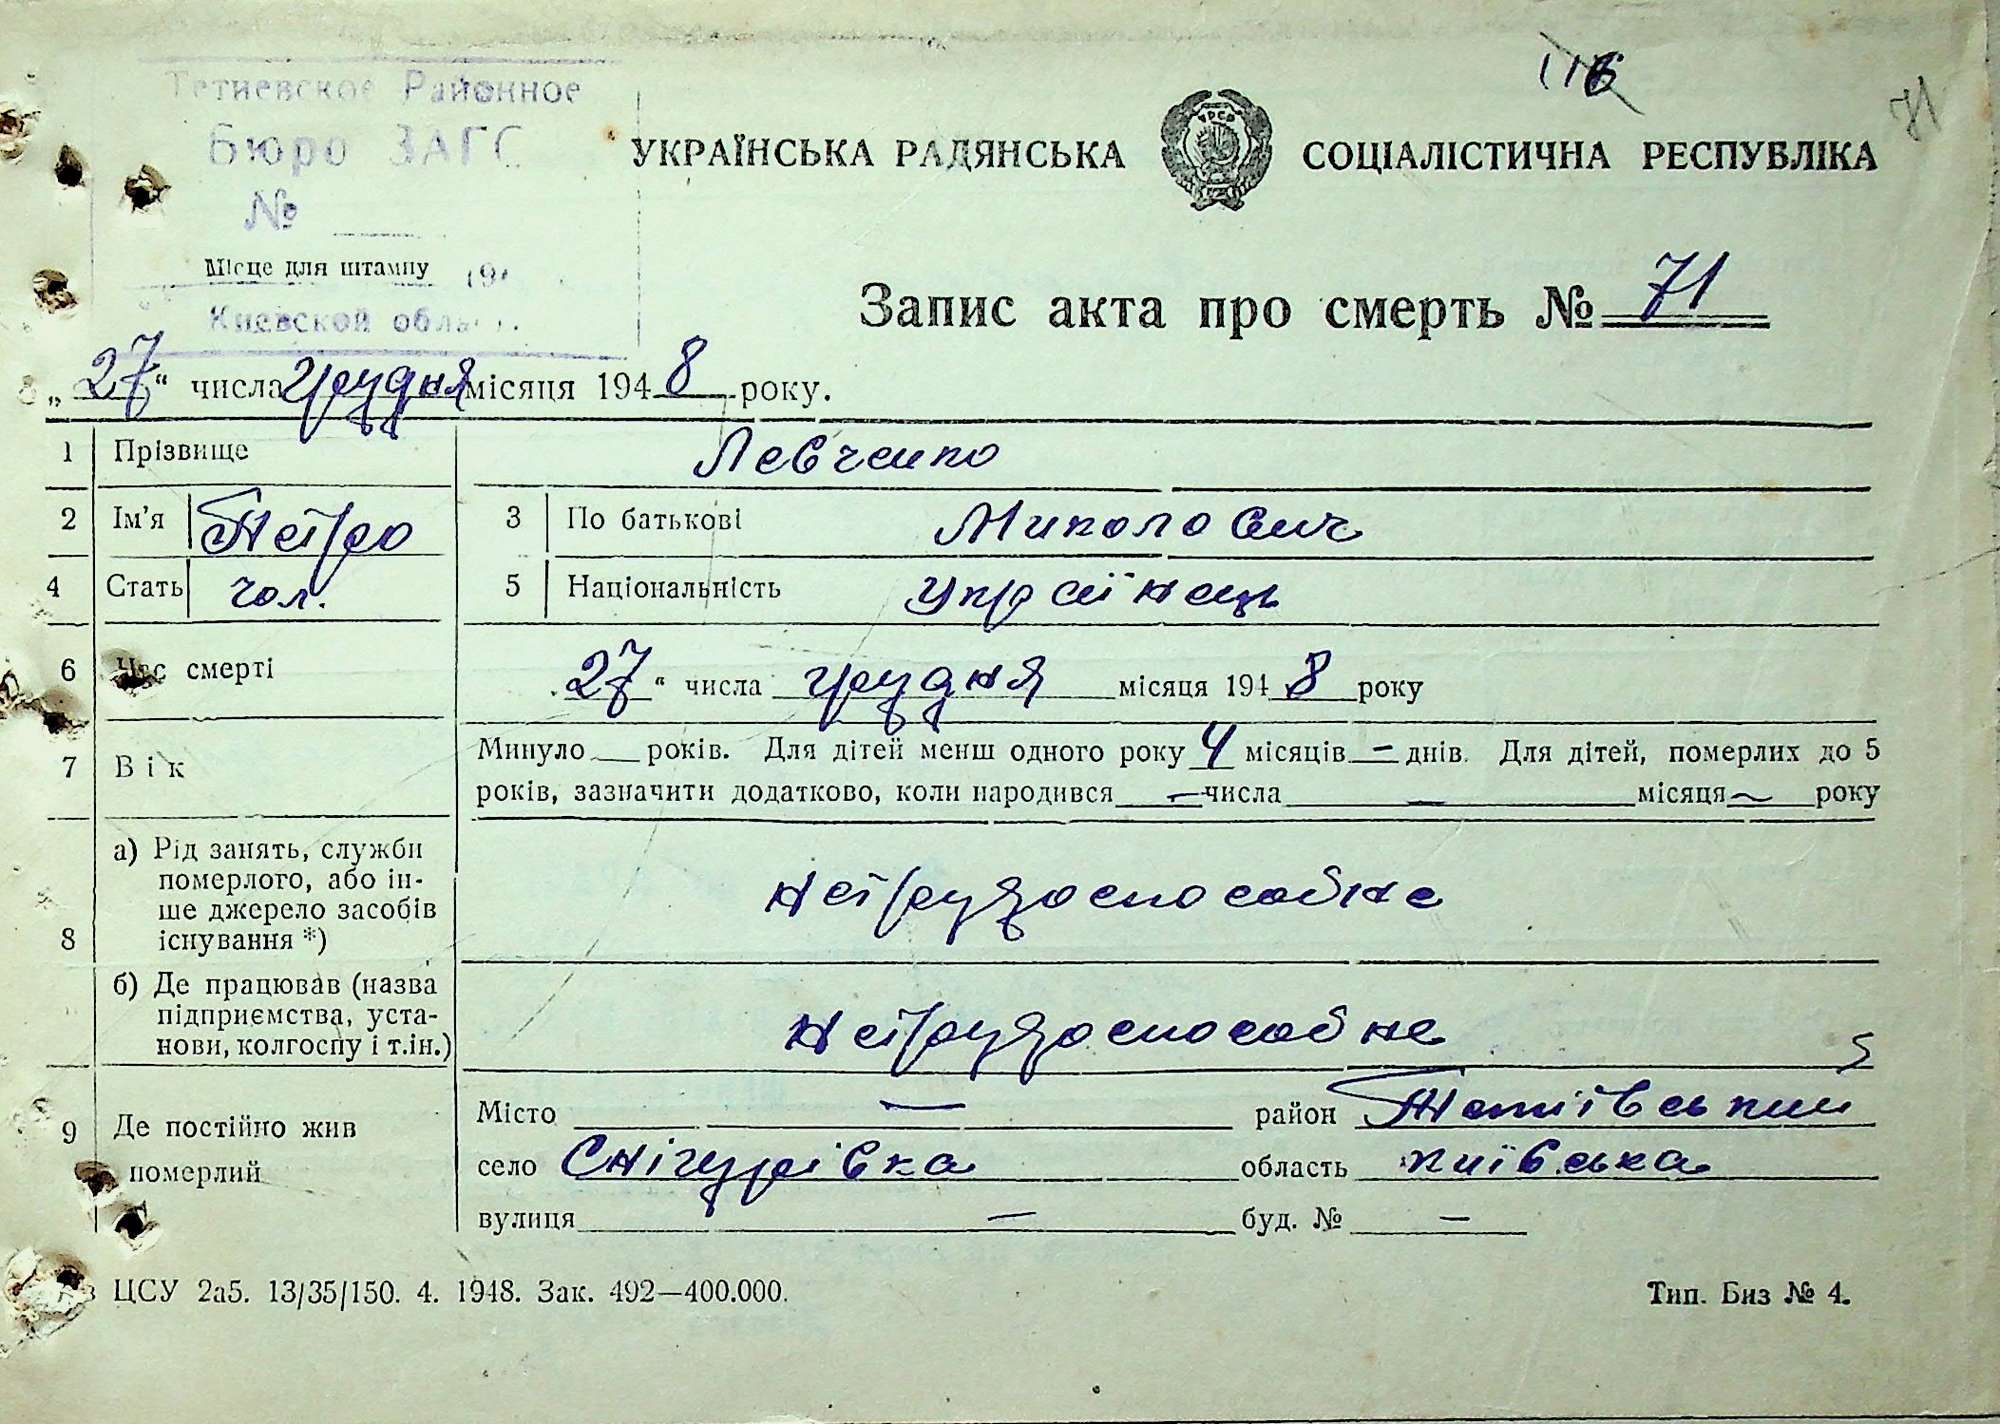 116
71
Тетиевское Районное
Бюро ЗАГС
№
Місце для штампу 194
Киевской облас
УКРАЇНСЬКА РАДЯНСЬКА СОЦІАЛІСТИЧНА РЕСПУБЛІКА
УРСР
Запис акта про смерть № 71
„27“ числа грудня місяця 1948 року.
1 Прізвище Левченко
2 Ім'я Петро 3 По батькові Миколович
4 Стать чол. 5 Національність Українець
6 Час смерті 27“ числа грудня місяця 1948 року
7 Вік Минуло — років. Для дітей менш одного року 4 місяців — днів. Для дітей, померлих до 5
років, зазначити додатково, коли народився — числа — місяця ~ року
8 а) Рід занять, служби
померлого, або ін-
ше джерело засобів
існування *)
нетрудоспособне
б) Де працював (назва
підприємства, уста-
нови, колгоспу і т.ін.)
нетрудоспособне
9 Де постійно жив
померлий
Місто — район Тетіївський
село Снігурівка область київська
вулиця — буд. № —
ЦСУ 2а5. 13/35/150. 4. 1948. Зак. 492—400.000.
Тип. Биз № 4.